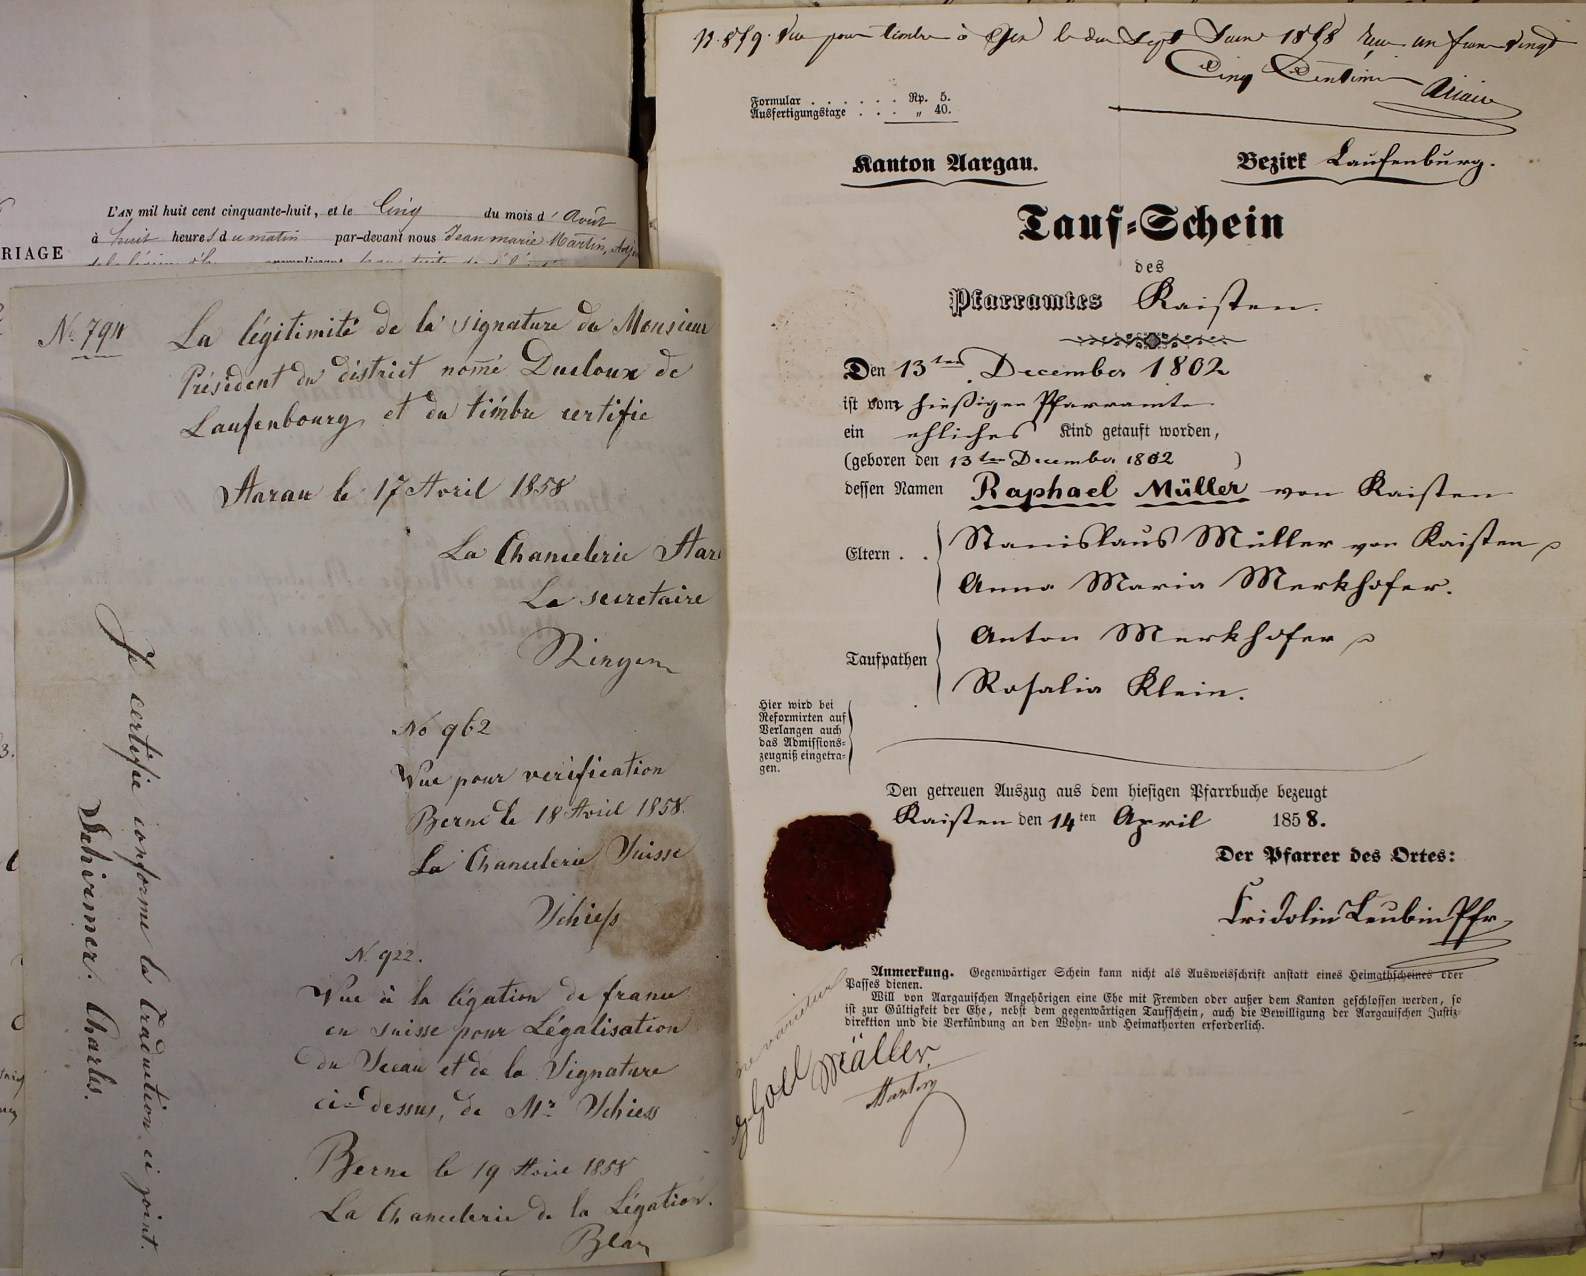 L'AN mil huit cent cinquante-huit, et le Cinq du mois d'Août
à huit heures du matin par-devant nous Jean marie Martin,
RIAGE
N° 794 La légitimité de la signature du Monsieur
Président du district nommé Ducloux de
Laufenbourg et du timbre certifie
Aarau le 17 Avril 1858
La Chancelerie
Le secretaire
Ringer
No 962
Vue pour verification
Berne le 18 Avril 1858.
La Chancelerie Suisse
Schiess
N. 922.
Vue à la légation de france
en Suisse pour Légalisation
du Sceau et de la Signature
ci-dessus, de Mr Schiess
Berne le 19 Avril 1858
La Chancelerie de la Légation.
Je certifie conforme la traduction ci joint.
Schirmer. Charles.
N. 859. Vu pour timbre à Gex le dix Sept Juin 1858 reçu un franc vingt
Cinq Centimes
Formular . . . . . . Rp. 5.
Ausfertigungstaxe . . . „ 40.
Kanton Aargau. Bezirk Laufenburg.
Tauf-Schein
des
Pfarramtes Kaisten.
Den 13ten December 1802
ist vom hiesigen Pfarramte
ein ehliches Kind getauft worden,
(geboren den 13ten December 1802 )
dessen Namen Raphael Müller von Kaisten
Eltern . . Stanislaus Müller von Kaisten
Anna Maria Merkhofer.
Taufpathen Anton Merkhofer
Rosalia Klein.
Hier wird bei
Reformirten auf
Verlangen auch
das Admissions-
zeugniß eingetra-
gen.
Den getreuen Auszug aus dem hiesigen Pfarrbuche bezeugt
Kaisten den 14ten April 1858.
Der Pfarrer des Ortes:
Fridolin Leubin Pfr.
Anmerkung. Gegenwärtiger Schein kann nicht als Ausweisschrift anstatt eines Heimathscheines oder
Passes dienen.
Will von Aargauischen Angehörigen eine Ehe mit Fremden oder außer dem Kanton geschlossen werden, so
ist zur Gültigkeit der Ehe, nebst dem gegenwärtigen Taufschein, auch die Bewilligung der Aargauischen Justiz-
direktion und die Verkündung an den Wohn- und Heimathorten erforderlich.
ne varietur
Müller
Martin